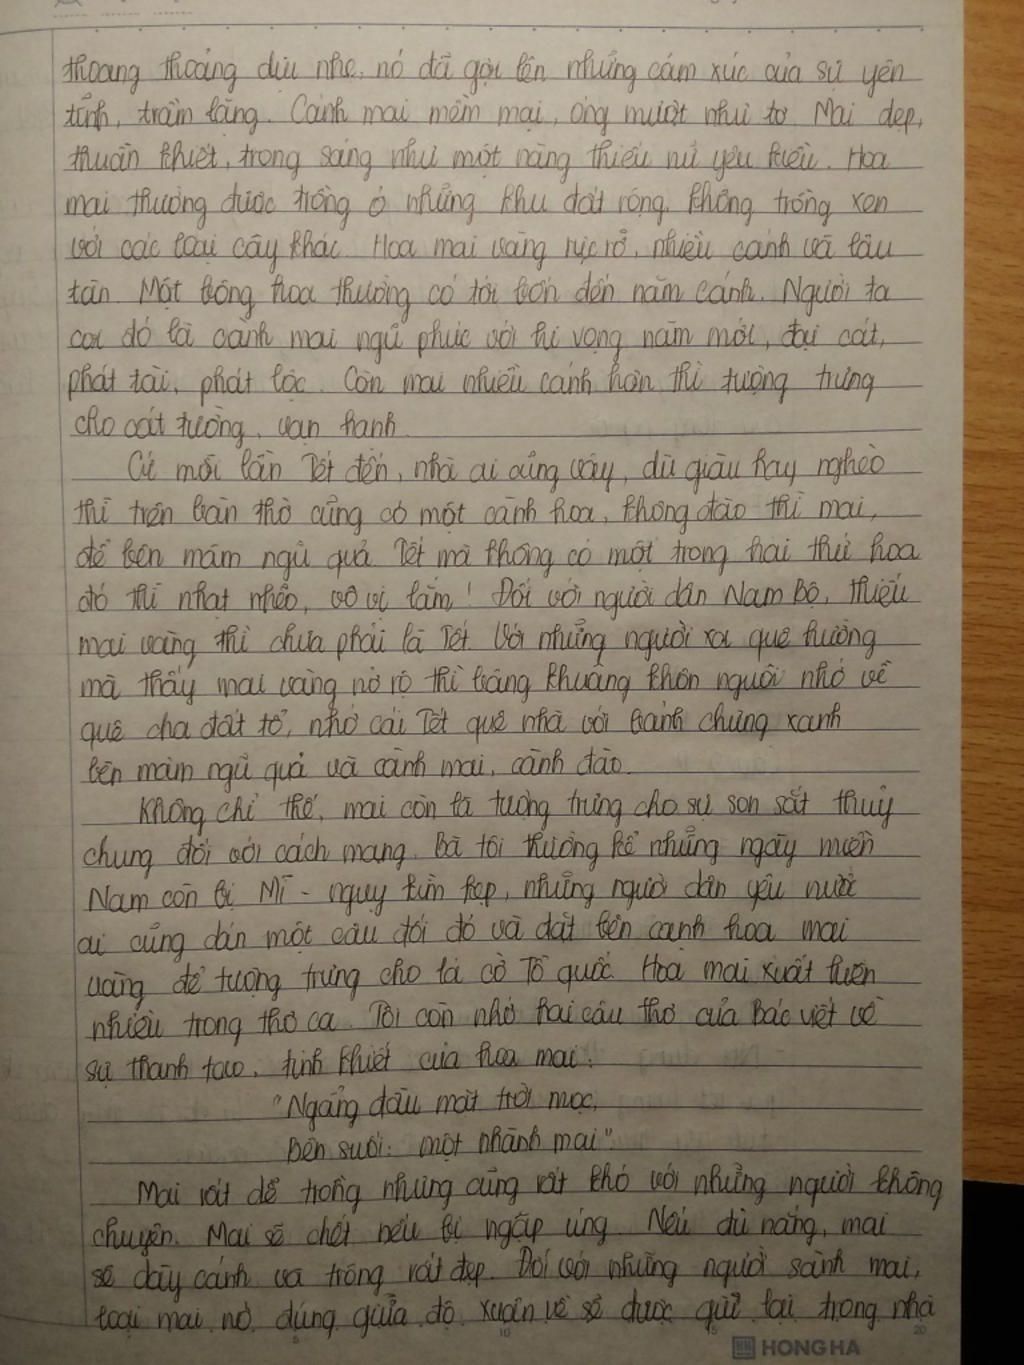 thoang thoảng dịu nhẹ, nó đã gợi lên những cảm xúc của sự yên
tĩnh, trầm lắng. Cánh mai mềm mại, óng mượt như tơ. Mai đẹp,
thuần khiết, trong sáng như một nàng thiếu nữ yêu kiều. Hoa
mai thường được trồng ở những khu đất rộng, không trồng xen
với các loại cây khác. Hoa mai vàng rực rỡ, nhiều cánh và lâu
tàn. Một bông hoa thường có tới bốn đến năm cánh. Người ta
coi đó là cành mai ngũ phúc với hi vọng năm mới, đại cát,
phát tài, phát lộc. Còn mai nhiều cánh hơn thì tượng trưng
cho cát tường, vạn hanh.
Cứ mỗi lần Tết đến, nhà ai cũng vậy, dù giàu hay nghèo
thì trên bàn thờ cũng có một cành hoa, không đào thì mai,
để bên mâm ngũ quả. Tết mà không có một trong hai thứ hoa
đó thì nhạt nhẽo, vô vị lắm! Đối với người dân Nam Bộ, thiếu
mai vàng thì chưa phải là Tết. Với những người xa quê hương
mà thấy mai vàng nở rộ thì bâng khuâng khôn nguôi nhớ về
quê cha đất tổ, nhớ cái Tết quê nhà với bánh chưng xanh
bên mâm ngũ quả và cành mai, cành đào.
Không chỉ thế, mai còn là tượng trưng cho sự son sắt thuỷ
chung đối với cách mạng. Bà tôi thường kể những ngày miền
Nam còn bị Mĩ - nguỵ kìm kẹp, những người dân yêu nước
ai cũng dán một câu đối đỏ và đặt bên cạnh hoa mai
vàng để tượng trưng cho lá cờ Tổ quốc. Hoa mai xuất hiện
nhiều trong thơ ca. Tôi còn nhớ hai câu thơ của Bác viết về
sự thanh tao, tinh khiết của hoa mai:
"Ngẩng đầu mặt trời mọc,
Bên suối: một nhành mai".
Mai rất dễ trồng nhưng cũng rất khó với những người không
chuyên. Mai sẽ chết nếu bị ngập úng. Nếu đủ nắng, mai
sẽ dày cánh và trông rất đẹp. Đối với những người sành mai,
loại mai nở đúng giữa độ xuân về sẽ được giữ lại trong nhà
5 10 15 20
HONG HA